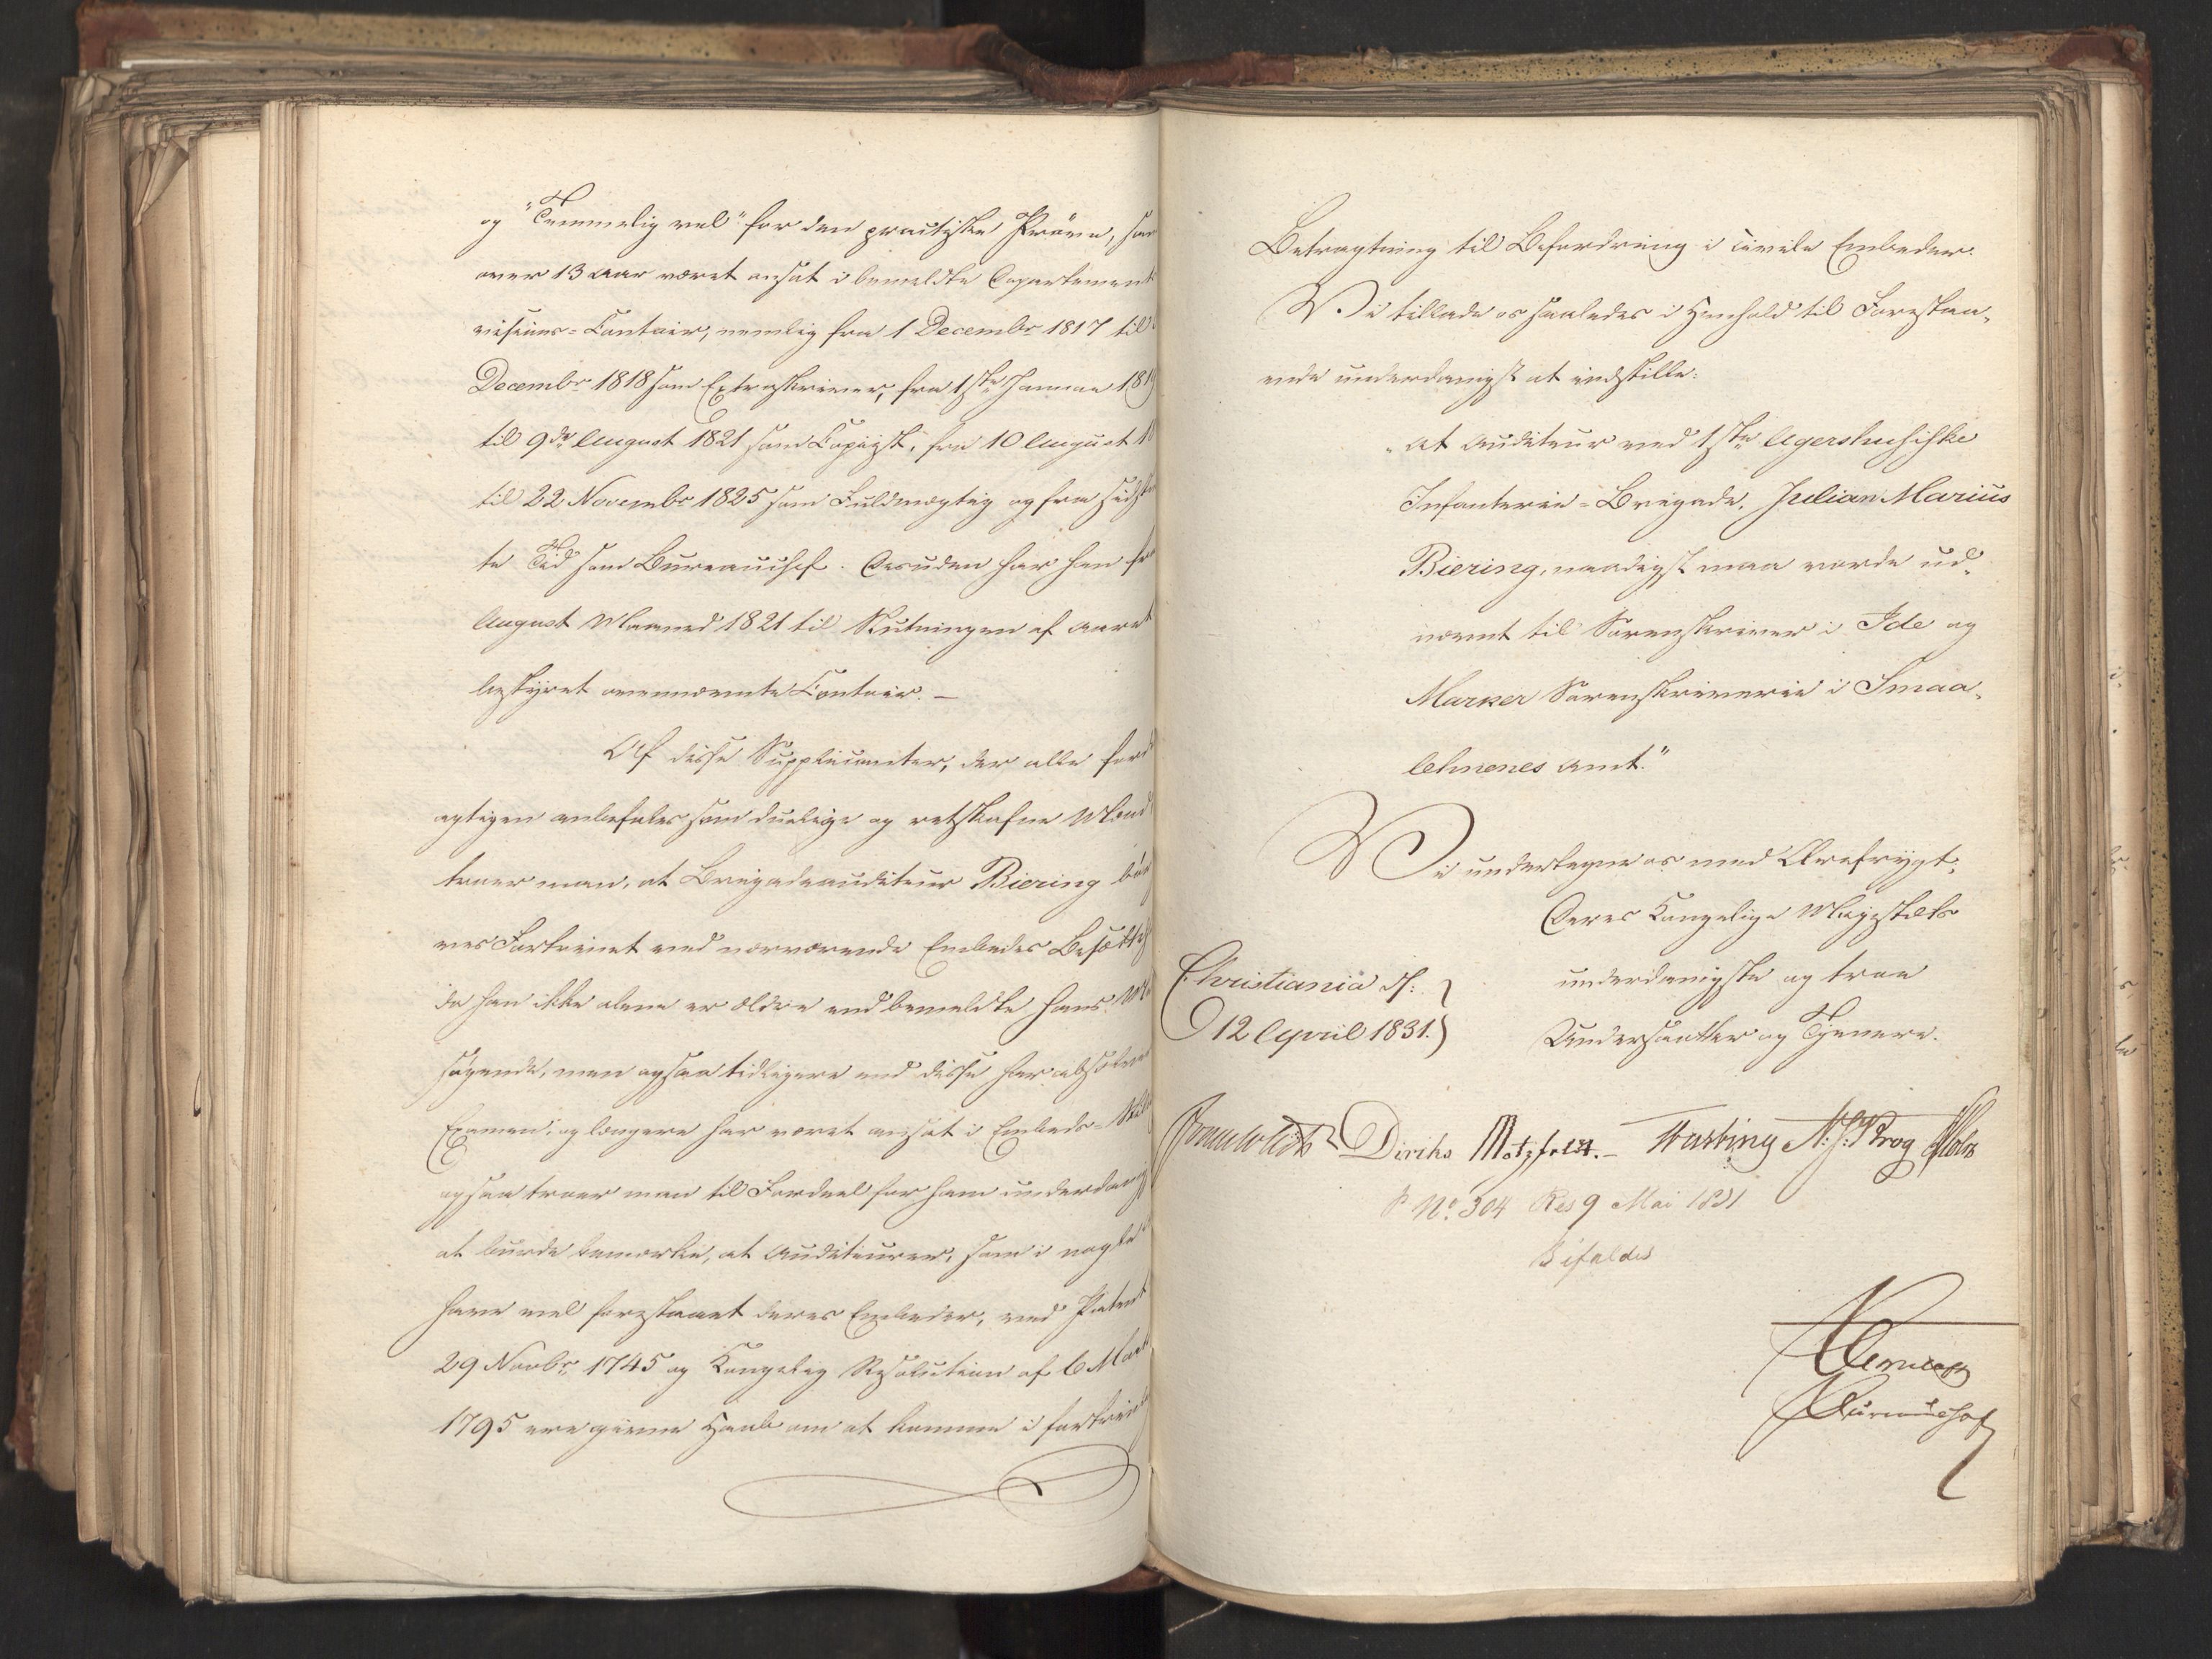 og "Temmelig vel" for den practiske Prøve, har
over 13 aar været ansat i bemeldte Departements
visions-Contoir, nemlig fra 1 Decembr 1817 til
Decembr 1818 som Extraskriver, fra 1ste Januar 1819
til 9de August 1821 som Copiist, fra 10 August
til 22 Novembr 1825 som Fuldmægtig og fra sidst
te Tid som Bureauchef. Desuden har han fra
August Maaned 1821 til Slutningen af aaret
bestyret ovennævnte Contoir. —
Af disse Supplicanter, der alle ford
agtigen anbefales som duelige og retskafne Mænd
troer man, at Brigadeauditeur Biering bør
ves Fortrinet ved nærværende Embedes Besættelse
da han ikke alene er ældre end bemeldte hans
søgende, men ogsaa tidligere end disse har absolveret
Examen, og længere har været ansat i Embeds-
ogsaa troer man til Fordeel for ham underdanigst
at burde bemærke, at Auditeurer, som i nogle
have vel forestaaet deres Embeder, ved Patent
29 Novbr 1745 og Kongelig Resolution af 6 Marts
1795 ere givne Haab om at komme i fortrinlig
Betragtning til Befordring i civile Embeder.
Vi tillade os saaledes i Henhold til Forestaa-
ende underdanigst at indstille:
"at Auditeur ved 1ste Agershusiske
Infanterie-Brigade, Julian Marius
Biering, naadigst maa vorde ud-
nævnt til Sorenskriver i Ide og
Marker Sorenskriverie i Smaa-
lehnenes Amt."
Vi undertegne os med Ærefrygt:
Deres Kongelige Majestæts
Christiania d.
underdanigste og troe
12 April 1831.
Undersaatter og Tjenere.
Diriks Motzfeldt. – Fasting N: J: Krog Holst
P No. 304 Res 9 Mai 1831
Bifaldes